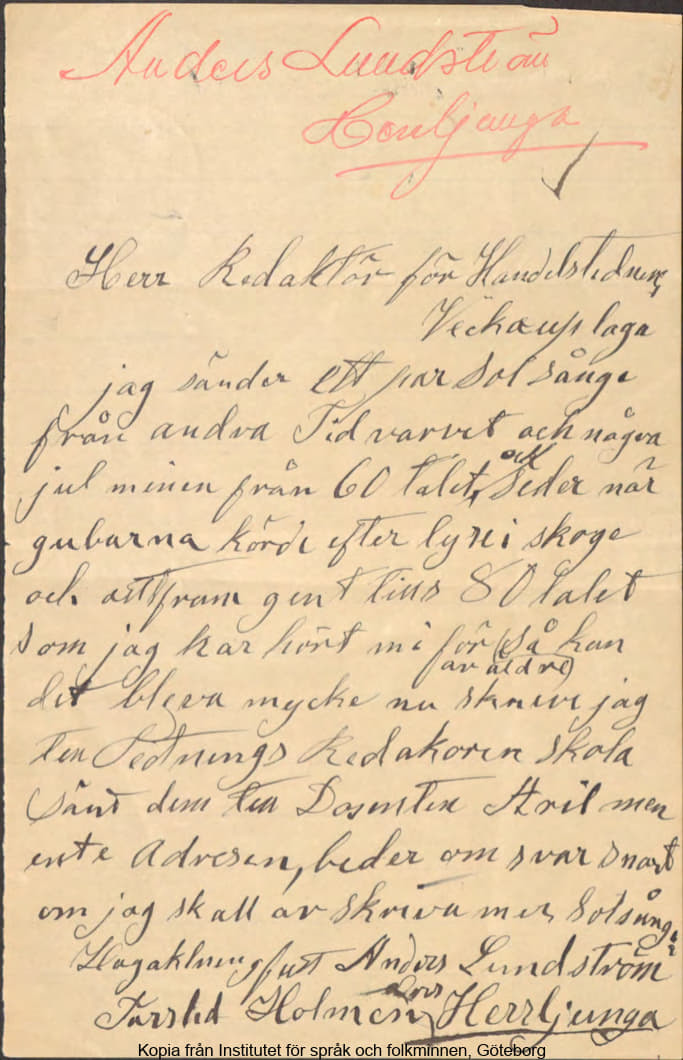 Anders Lundström
Herrljunga
Herr Redaktör för Handelstidnen,
Veckoup laga
jag sänder ett par Sol sånge
från andra Tid varvet och några
jul minen från 60 talet, och Seder när
gubarna körde efter lyse i skoge
och fram gent tins 80 talet
som jag har hört mi för (så kan
av äldre)
det bleva mycke nu skreve jag
ten Tednings Redakoren skola
sänt dem ten Dosenten Aril men
ente Adresen, beder om svar snart
om jag skall av skriva mer Solsånge
Hogaktnengfust Anders Lundström
Tarsled Holmen, Herrljunga
Kopia från Institutet för språk och folkminnen, Göteborg